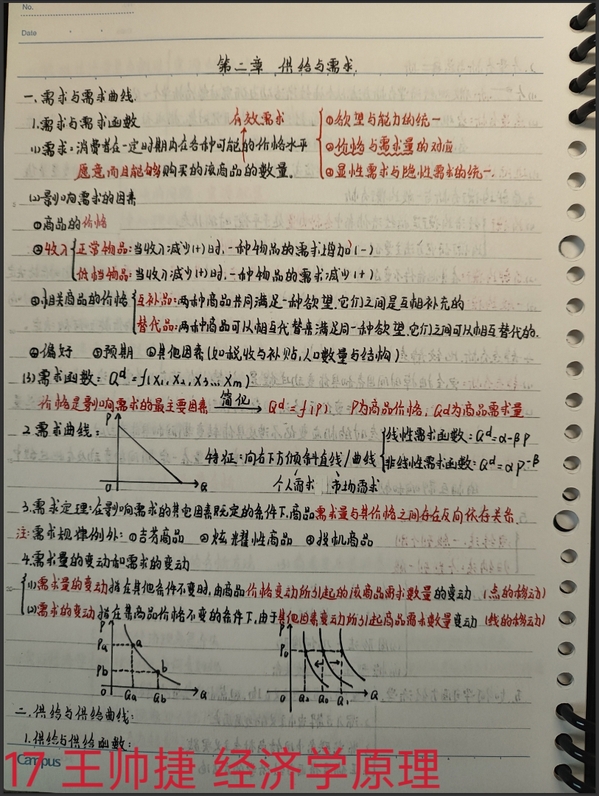 No.
Date
第二章 供给与需求.
一.需求与需求曲线.
1.需求与需求函数
有效需求
⑴需求:消费者在一定时期内在各种可能的价格水平
愿意而且能够购买的该商品的数量.
①欲望与能力的统一
②价格与需求量的对应
③显性需求与隐性需求的统一.
⑵影响需求的因素
①商品的价格
②收入
正常物品:当收入减少(+)时,一种物品的需求增加(-)
低档物品:当收入减少(+)时,一种物品的需求减少(+)
③相关商品的价格
互补品:两种商品共同满足一种欲望,它们之间是互相补充的
替代品:两种商品可以相互代替来满足同一种欲望,它们之间可以相互替代的.
④偏好 ⑤预期 ⑥其他因素(如税收与补贴,人口数量与结构)
⑶需求函数: Qd=f(X₁,X₂,X₃…Xm)
价格是影响需求的最主要因素 简化 Qd=f(P). P为商品价格, Qd为商品需求量
2.需求曲线:
P
O
Q
特征:向右下方倾斜直线/曲线
个人需求 市场需求
线性需求函数:Qd=α-βP
非线性需求函数:Qd=αP^-β
3.需求定理:在影响需求的其它因素既定的条件下,商品需求量与其价格之间存在反向依存关系.
注:需求规律例外:①吉芬商品 ②炫耀性商品 ③投机商品
4.需求量的变动和需求的变动
⑴需求量的变动指在其他条件不变时,由商品价格变动所引起的该商品需求数量的变动 (点的移动)
⑵需求的变动指在某商品价格不变的条件下,由于其他因素变动所引起商品需求数量变动 (线的移动)
P
Pa
a
Pb
b
O
Qa
Qb
Q
P
P₀
O
Q₂
Q₀
Q₁
Q
二.供给与供给曲线:
1.供给与供给函数:
Campus
17 王帅捷 经济学原理